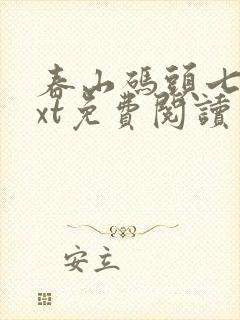 春山碼頭七
xt免費閱讀
安立